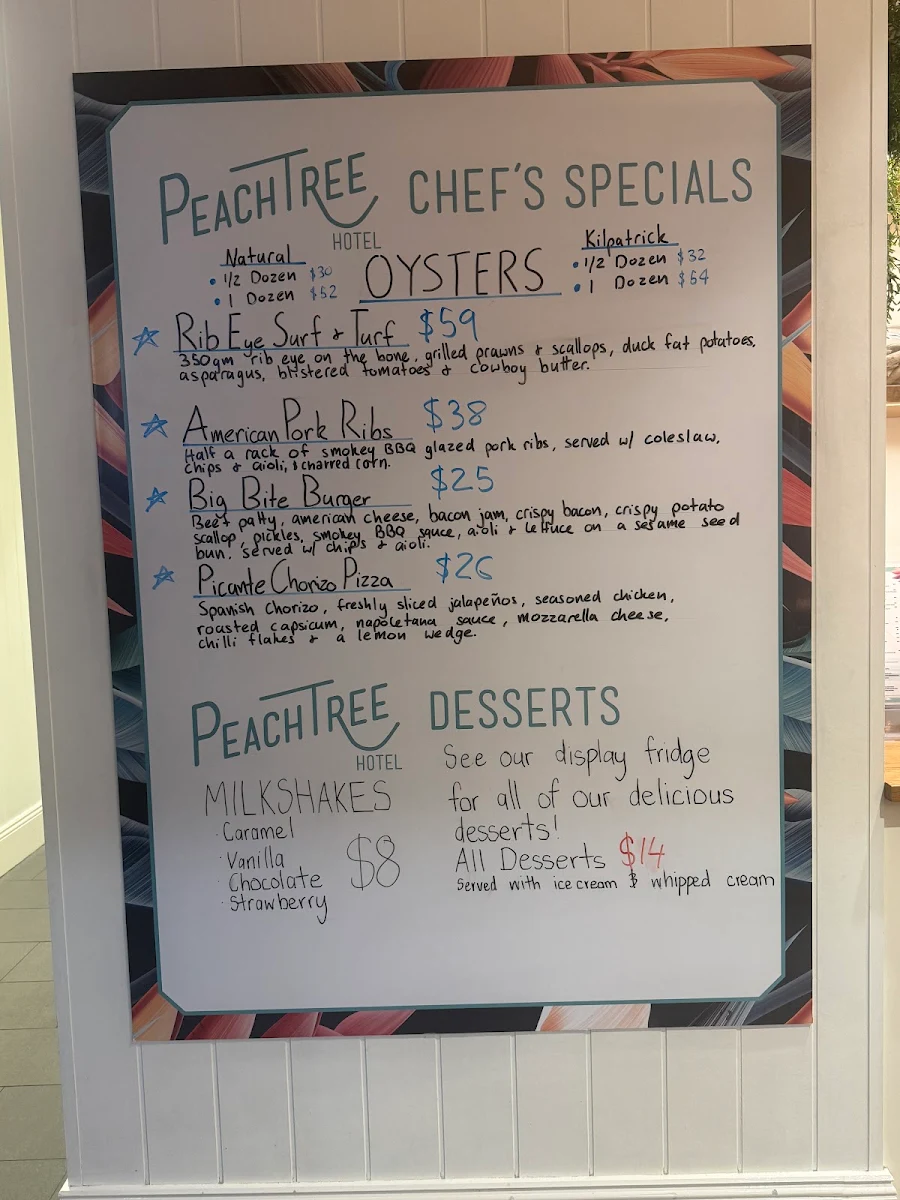 PEACHTREE HOTEL CHEF'S SPECIALS
Natural
• 1/2 Dozen $30
• 1 Dozen $52
OYSTERS
Kilpatrick
• 1/2 Dozen $32
• 1 Dozen $54
Rib Eye Surf & Turf $59
350gm rib eye on the bone, grilled prawns & scallops, duck fat potatoes,
asparagus, blistered tomatoes & cowboy butter.
American Pork Ribs $38
Half a rack of smokey BBQ glazed pork ribs, served w/ coleslaw,
chips & aioli, & charred corn.
Big Bite Burger $25
Beef patty, american cheese, bacon jam, crispy bacon, crispy potato
scallop, pickles, smokey BBQ sauce, aioli & lettuce on a sesame seed
bun. served w/ chips & aioli.
Picante Chorizo Pizza $26
Spanish Chorizo, freshly sliced jalapeños, seasoned chicken,
roasted capsicum, napoletana sauce, mozzarella cheese,
chilli flakes & a lemon wedge.
PEACHTREE HOTEL DESSERTS
MILKSHAKES
· Caramel
· Vanilla
· Chocolate
· Strawberry
$8
See our display fridge
for all of our delicious
desserts!
All Desserts $14
Served with ice cream & whipped cream